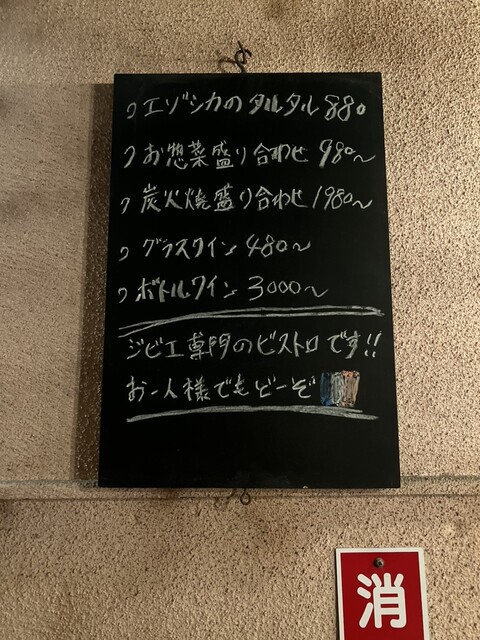 っエゾシカのタルタル 880
っお惣菜盛り合わせ 980〜
っ炭火焼盛り合わせ 1980〜
っグラスワイン 480〜
っボトルワイン 3000〜
ジビエ専門のビストロです!!
お一人様でもどーぞ
消